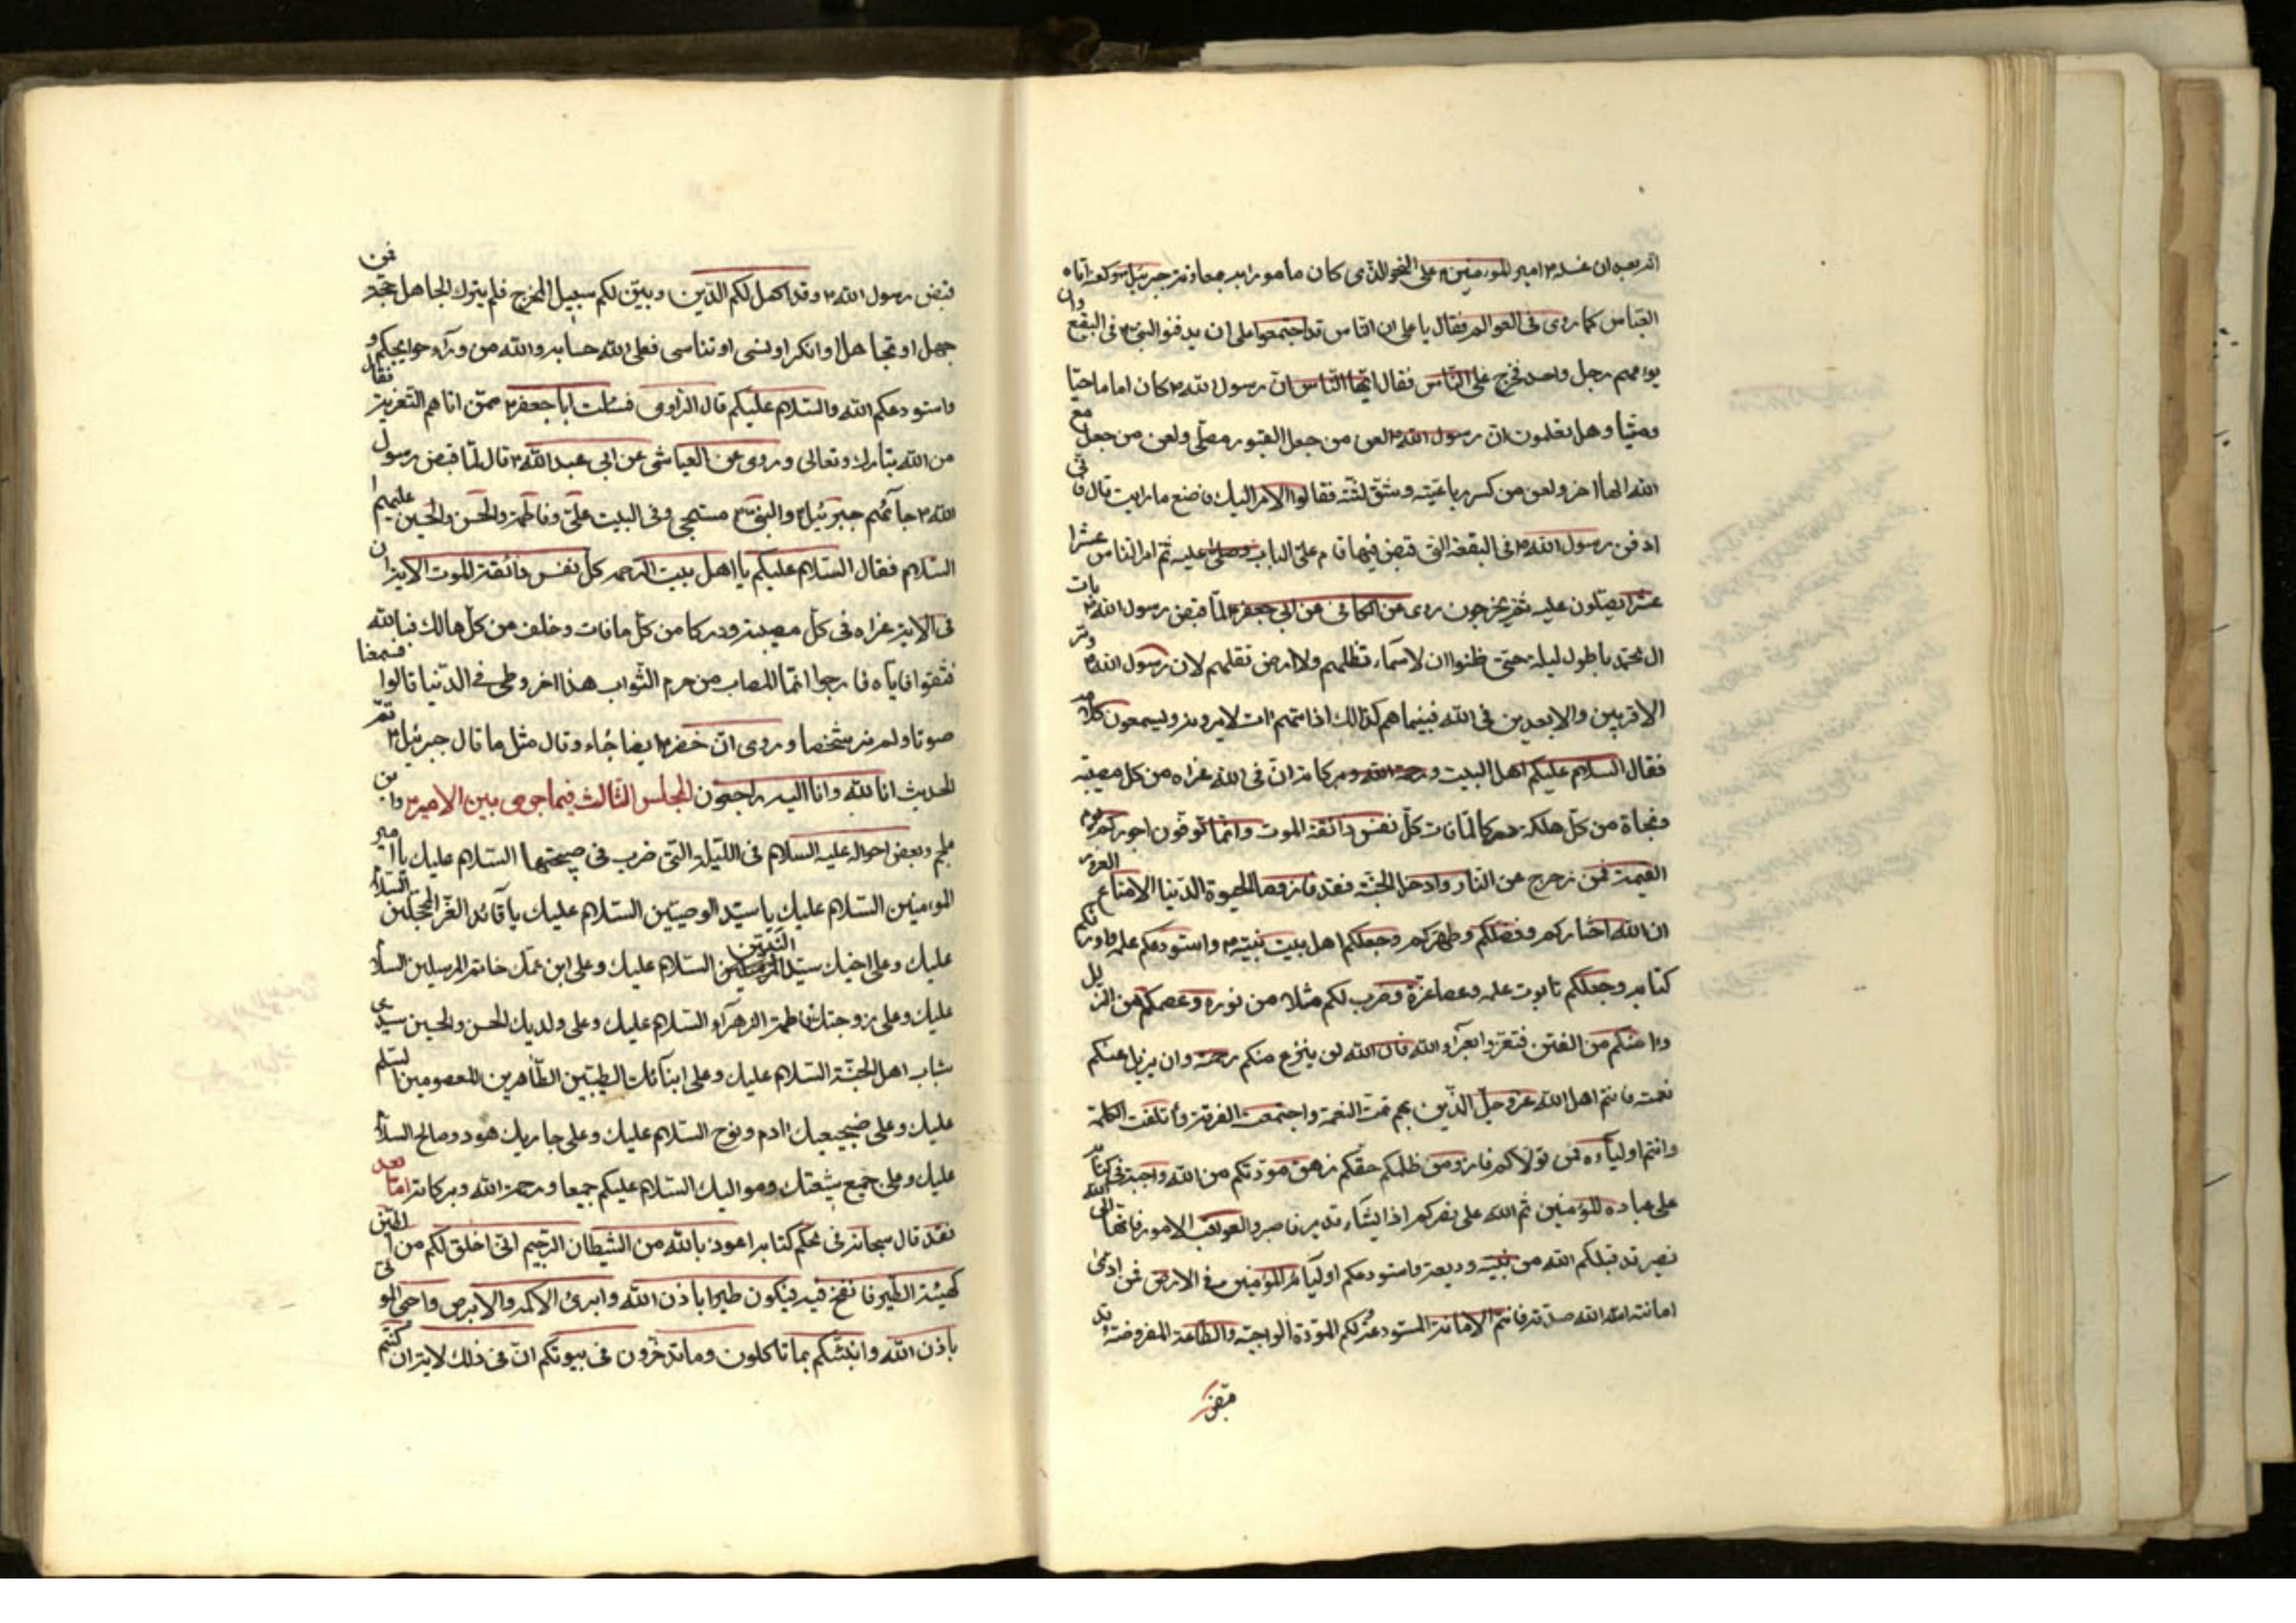 انه بعد ان غسله امير المؤمنين على النحو الذى كان مامورا به بمعاونة جبرئيل اتاه
العباس كما روى فى العوالم فقال يا على ان الناس قد اجتمعوا على ان يدفنوا النبى فى البقيع وان
يؤمهم رجل واحد فخرج على الناس فقال ايها الناس ان رسول الله كان اماما حيا
وميتا وهل تعلمون ان رسول الله لعن من جعل القبور مصلى ولعن من جعل مع
الله الها اخر ولعن من كسر رباعيته وشق لثته فقالوا الامر اليك فاصنع ما رايت قال فانى
ادفن رسول الله فى البقعة التى قبض فيها قام على الباب وصلى عليه ثم امر الناس عشرا
عشرا يصلون عليه ثم يخرجون روى عن الكافى عن ابى جعفر لما قبض رسول الله بات
ال محمد باطول ليلة حتى ظنوا ان لا سماء تظلهم ولا ارض تقلهم لان رسول الله وتر
الاقربين والابعدين فى الله فبينما هم كذالك اذ اتاهم ات لا يرونه ويسمعون كلامه
فقال السلام عليكم اهل البيت ورحمة الله وبركاته ان فى الله عزاء من كل مصيبة
ونجاة من كل هلكة ودركا لما فات كل نفس ذائقة الموت وانما توفون اجوركم يوم
القيمة فمن زحزح عن النار وادخل الجنة فقد فاز وما الحيوة الدنيا الا متاع الغرور
ان الله اختاركم وفضلكم وطهركم وجعلكم اهل بيت نبيه واستودعكم علمه واورثكم
كتابه وجعلكم تابوت علمه وعصا عزه وضرب لكم مثلا من نوره وعصمكم من الزلل
وامنكم من الفتن فتعزوا بعزاء الله فان الله لن ينزع منكم رحمته وان يزيل عنكم
نعمته فانتم اهل الله عز وجل الذين بهم تمت النعمة واجتمعت الفرقة وائتلفت الكلمة
وانتم اولياءه فمن تولاكم فاز ومن ظلمكم حقكم زهق مودتكم من الله واجبة فى كتابه
على عباده المؤمنين ثم الله على نصركم اذا يشاء قدير فاصبروا لعواقب الامور فانها الى الله
تصير قد قبلكم الله من نبيه وديعة واستودعكم اولياءه المؤمنين فى الارض فمن ادى
امانته اتاه الله صدقه فانتم الامانة المستودعة ولكم المودة الواجبة والطاعة المفروضة وقد
قبض
قبض رسول الله وقد اكمل لكم الدين وبين لكم سبيل المخرج فلم يترك لجاهل حجة فمن
جهل او تجاهل او انكر او نسى او تناسى فعلى الله حسابه والله من وراء حوائجكم و
استودعكم الله والسلام عليكم قال الراوى فسئلت ابا جعفر ممن اتاهم التعزية فقال
من الله تبارك وتعالى وروى عن العياشى عن ابى عبد الله قال لما قبض رسول
الله جائهم جبرئيل والنبى مسجى وفى البيت على وفاطمة والحسن والحسين عليهم
السلام فقال السلام عليكم يا اهل بيت الرحمه كل نفس ذائقة الموت الاية ان
فى الاية عزاء فى كل مصيبة ودركا من كل مافات وخلف من كل هالك فبالله
فثقوا واياه فارجوا انما المصاب من حرم الثواب هذا اخر وطى فى الدنيا قالوا فسمعنا
صوتا ولم نر شخصا وروى ان خضر ايضا جاء وقال مثل ما قال جبرئيل تم
الحديث انا لله وانا اليه راجعون المجلس الثالث فيما جرى بين الامير وابن
ملجم وبعض احواله عليه السلام فى الليلة التى ضرب فى صبيحتها السلام عليك يا امير
المؤمنين السلام عليك يا سيد الوصيين السلام عليك يا قائد الغر المحجلين السلام
عليك وعلى اخيك سيد النبيين السلام عليك وعلى ابن عمك خاتم المرسلين السلام
عليك وعلى زوجتك فاطمة الزهراء السلام عليك وعلى ولديك الحسن والحسين سيدى
شباب اهل الجنة السلام عليك وعلى ابنائك الطيبين الطاهرين المعصومين السلام
عليك وعلى ضجيعيك ادم ونوح السلام عليك وعلى جاريك هود وصالح السلام
عليك وعلى جميع شيعتك ومواليك السلام عليكم جميعا ورحمة الله وبركاته اما بعد
فقد قال سبحانه فى محكم كتابه اعوذ بالله من الشيطان الرجيم انى اخلق لكم من الطين
كهيئة الطير فانفخ فيه فيكون طيرا باذن الله وابرئ الاكمه والابرص واحى الموتى
باذن الله وانبئكم بما تاكلون وما تدخرون فى بيوتكم ان فى ذلك لاية ان كنتم